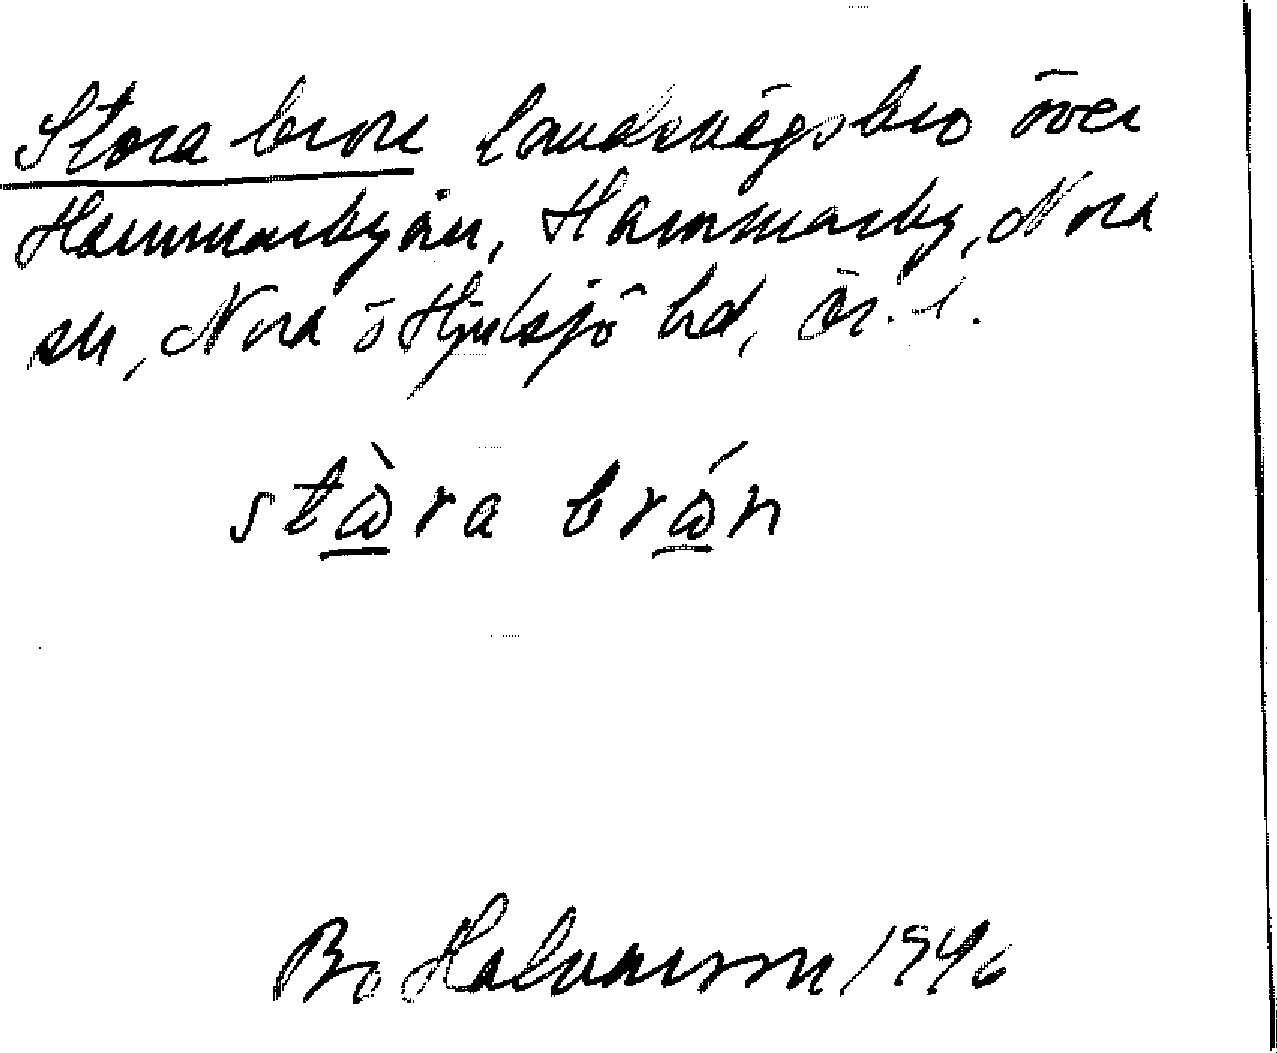 Stora bron landsvägsbro över
Hammarbyån, Hammarby, Nora
sn, Nora o Hjulsjö hd, ör. l.
stὼ̲ra brώ̲n
Bo Halvarson 1946